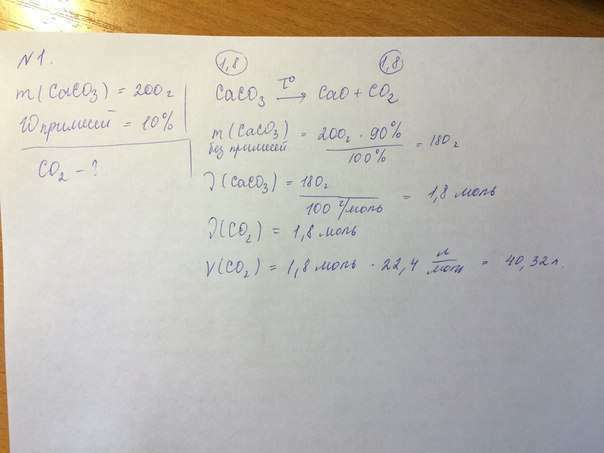 N1.
m(CaCO3) = 200 г
W примесей = 10%
CO2 - ?
1,8 1,8
CaCO3 →(t°) CaO + CO2
m(CaCO3) без примесей = 200г · 90% / 100% = 180 г
ν(CaCO3) = 180г / 100 г/моль = 1,8 моль
ν(CO2) = 1,8 моль
V(CO2) = 1,8 моль · 22,4 л/моль = 40,32 л.